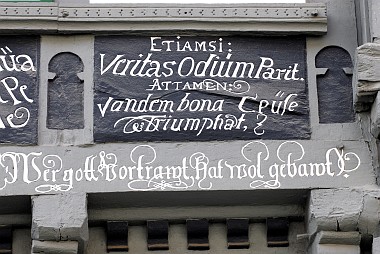 üa
Pe
e
Etiamsi:
Veritas Odiüm Parit.
Attamen:
bona
Triümphat,
Wer gott Vortrawt, Hat wol gebawt